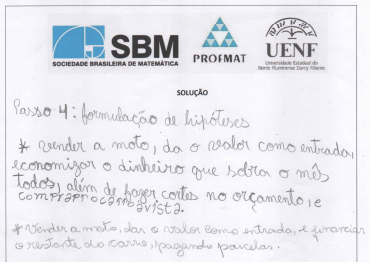 SBM
SOCIEDADE BRASILEIRA DE MATEMÁTICA
PROFMAT
UENF
Universidade Estadual do
Norte Fluminense Darcy Ribeiro
SOLUÇÃO
Passo 4: formulação de hipóteses
* Vender a moto, da o valor como entrada,
economizar o dinheiro que sobra o mês
todos, além de fazer cortes no orçamento, e
comprar o carro a vista.
* Vender a moto, dar o valor como entrada, e financiar
o restante do carro, pagando parcelas.